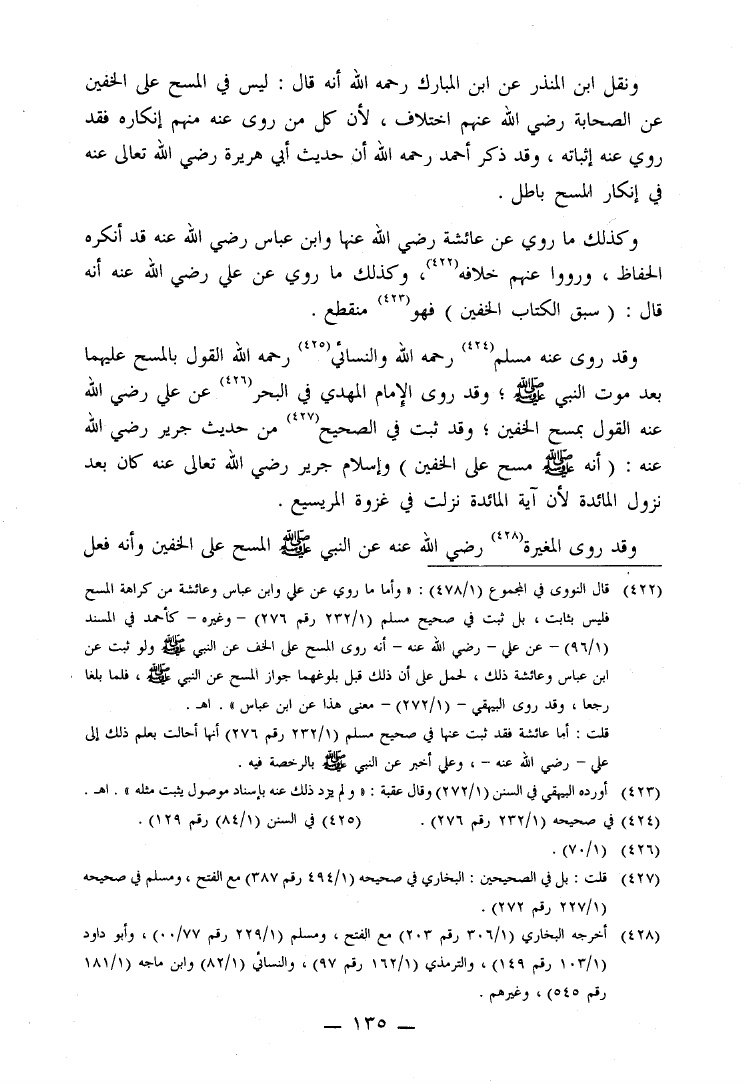 ونقل ابن المنذر عن ابن المبارك رحمه الله أنه قال : ليس في المسح على الخفين
عن الصحابة رضي الله عنهم اختلاف ، لأن كل من روى عنه منهم إنكاره فقد
روي عنه إثباته ، وقد ذكر أحمد رحمه الله أن حديث أبي هريرة رضي الله تعالى عنه
في إنكار المسح باطل .
وكذلك ما روي عن عائشة رضي الله عنها وابن عباس رضي الله عنه قد أنكره
الحفاظ ، ورووا عنهم خلافه(٤٢٢)، وكذلك ما روي عن علي رضي الله عنه أنه
قال : ( سبق الكتاب الخفين ) فهو(٤٢٣) منقطع .
وقد روى عنه مسلم(٤٢٤) رحمه الله والنسائي(٤٢٥) رحمه الله القول بالمسح عليهما
بعد موت النبي ﷺ ؛ وقد روى الإمام المهدي في البحر(٤٢٦) عن علي رضي الله
عنه القول بمسح الخفين ؛ وقد ثبت في الصحيح(٤٢٧) من حديث جرير رضي الله
عنه : ( أنه ﷺ مسح على الخفين ) وإسلام جرير رضي الله تعالى عنه كان بعد
نزول المائدة لأن آية المائدة نزلت في غزوة المريسيع .
وقد روى المغيرة(٤٢٨) رضي الله عنه عن النبي ﷺ المسح على الخفين وأنه فعل
(٤٢٢) قال النووى في المجموع (٤٧٨/١) : « وأما ما روي عن علي وابن عباس وعائشة من كراهة المسح
فليس بثابت ، بل ثبت في صحيح مسلم (٢٣٢/١ رقم ٢٧٦) – وغيره – كأحمد في المسند
(٩٦/١) – عن علي – رضي الله عنه – أنه روى المسح على الخف عن النبي ﷺ ولو ثبت عن
ابن عباس وعائشة ذلك ، لحمل على أن ذلك قبل بلوغهما جواز المسح عن النبي ﷺ ، فلما بلغا
رجعا ، وقد روى البيهقي – (٢٧٢/١) – معنى هذا عن ابن عباس » . اهـ .
قلت : أما عائشة فقد ثبت عنها في صحيح مسلم (٢٣٢/١ رقم ٢٧٦) أنها أحالت بعلم ذلك إلى
علي – رضي الله عنه – ، وعلي أخبر عن النبي ﷺ بالرخصة فيه .
(٤٢٣) أورده البيهقي في السنن (٢٧٢/١) وقال عقبة : « ولم يزد ذلك عنه بإسناد موصول يثبت مثله » . اهـ .
(٤٢٤) في صحيحه (٢٣٢/١ رقم ٢٧٦) . (٤٢٥) في السنن (٨٤/١) رقم ١٢٩) .
(٤٢٦) (٧٠/١) .
(٤٢٧) قلت : بل في الصحيحين : البخاري في صحيحه (٤٩٤/١ رقم ٣٨٧) مع الفتح ، ومسلم في صحيحه
(٢٢٧/١ رقم ٢٧٢) .
(٤٢٨) أخرجه البخاري (٣٠٦/١ رقم ٢٠٣) مع الفتح ، ومسلم (٢٢٩/١ رقم ٠٠/٧٧) ، وأبو داود
(١٠٣/١ رقم ١٤٩) ، والترمذي (١٦٢/١ رقم ٩٧) ، والنسائي (٨٢/١) وابن ماجه (١٨١/١
رقم ٥٤٥) ، وغيرهم .
— ١٣٥ —